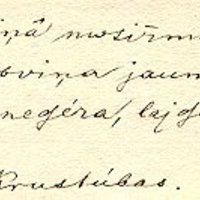 iņā nosirm
oviņa jaun
negéra, lajg
Krustúbas.